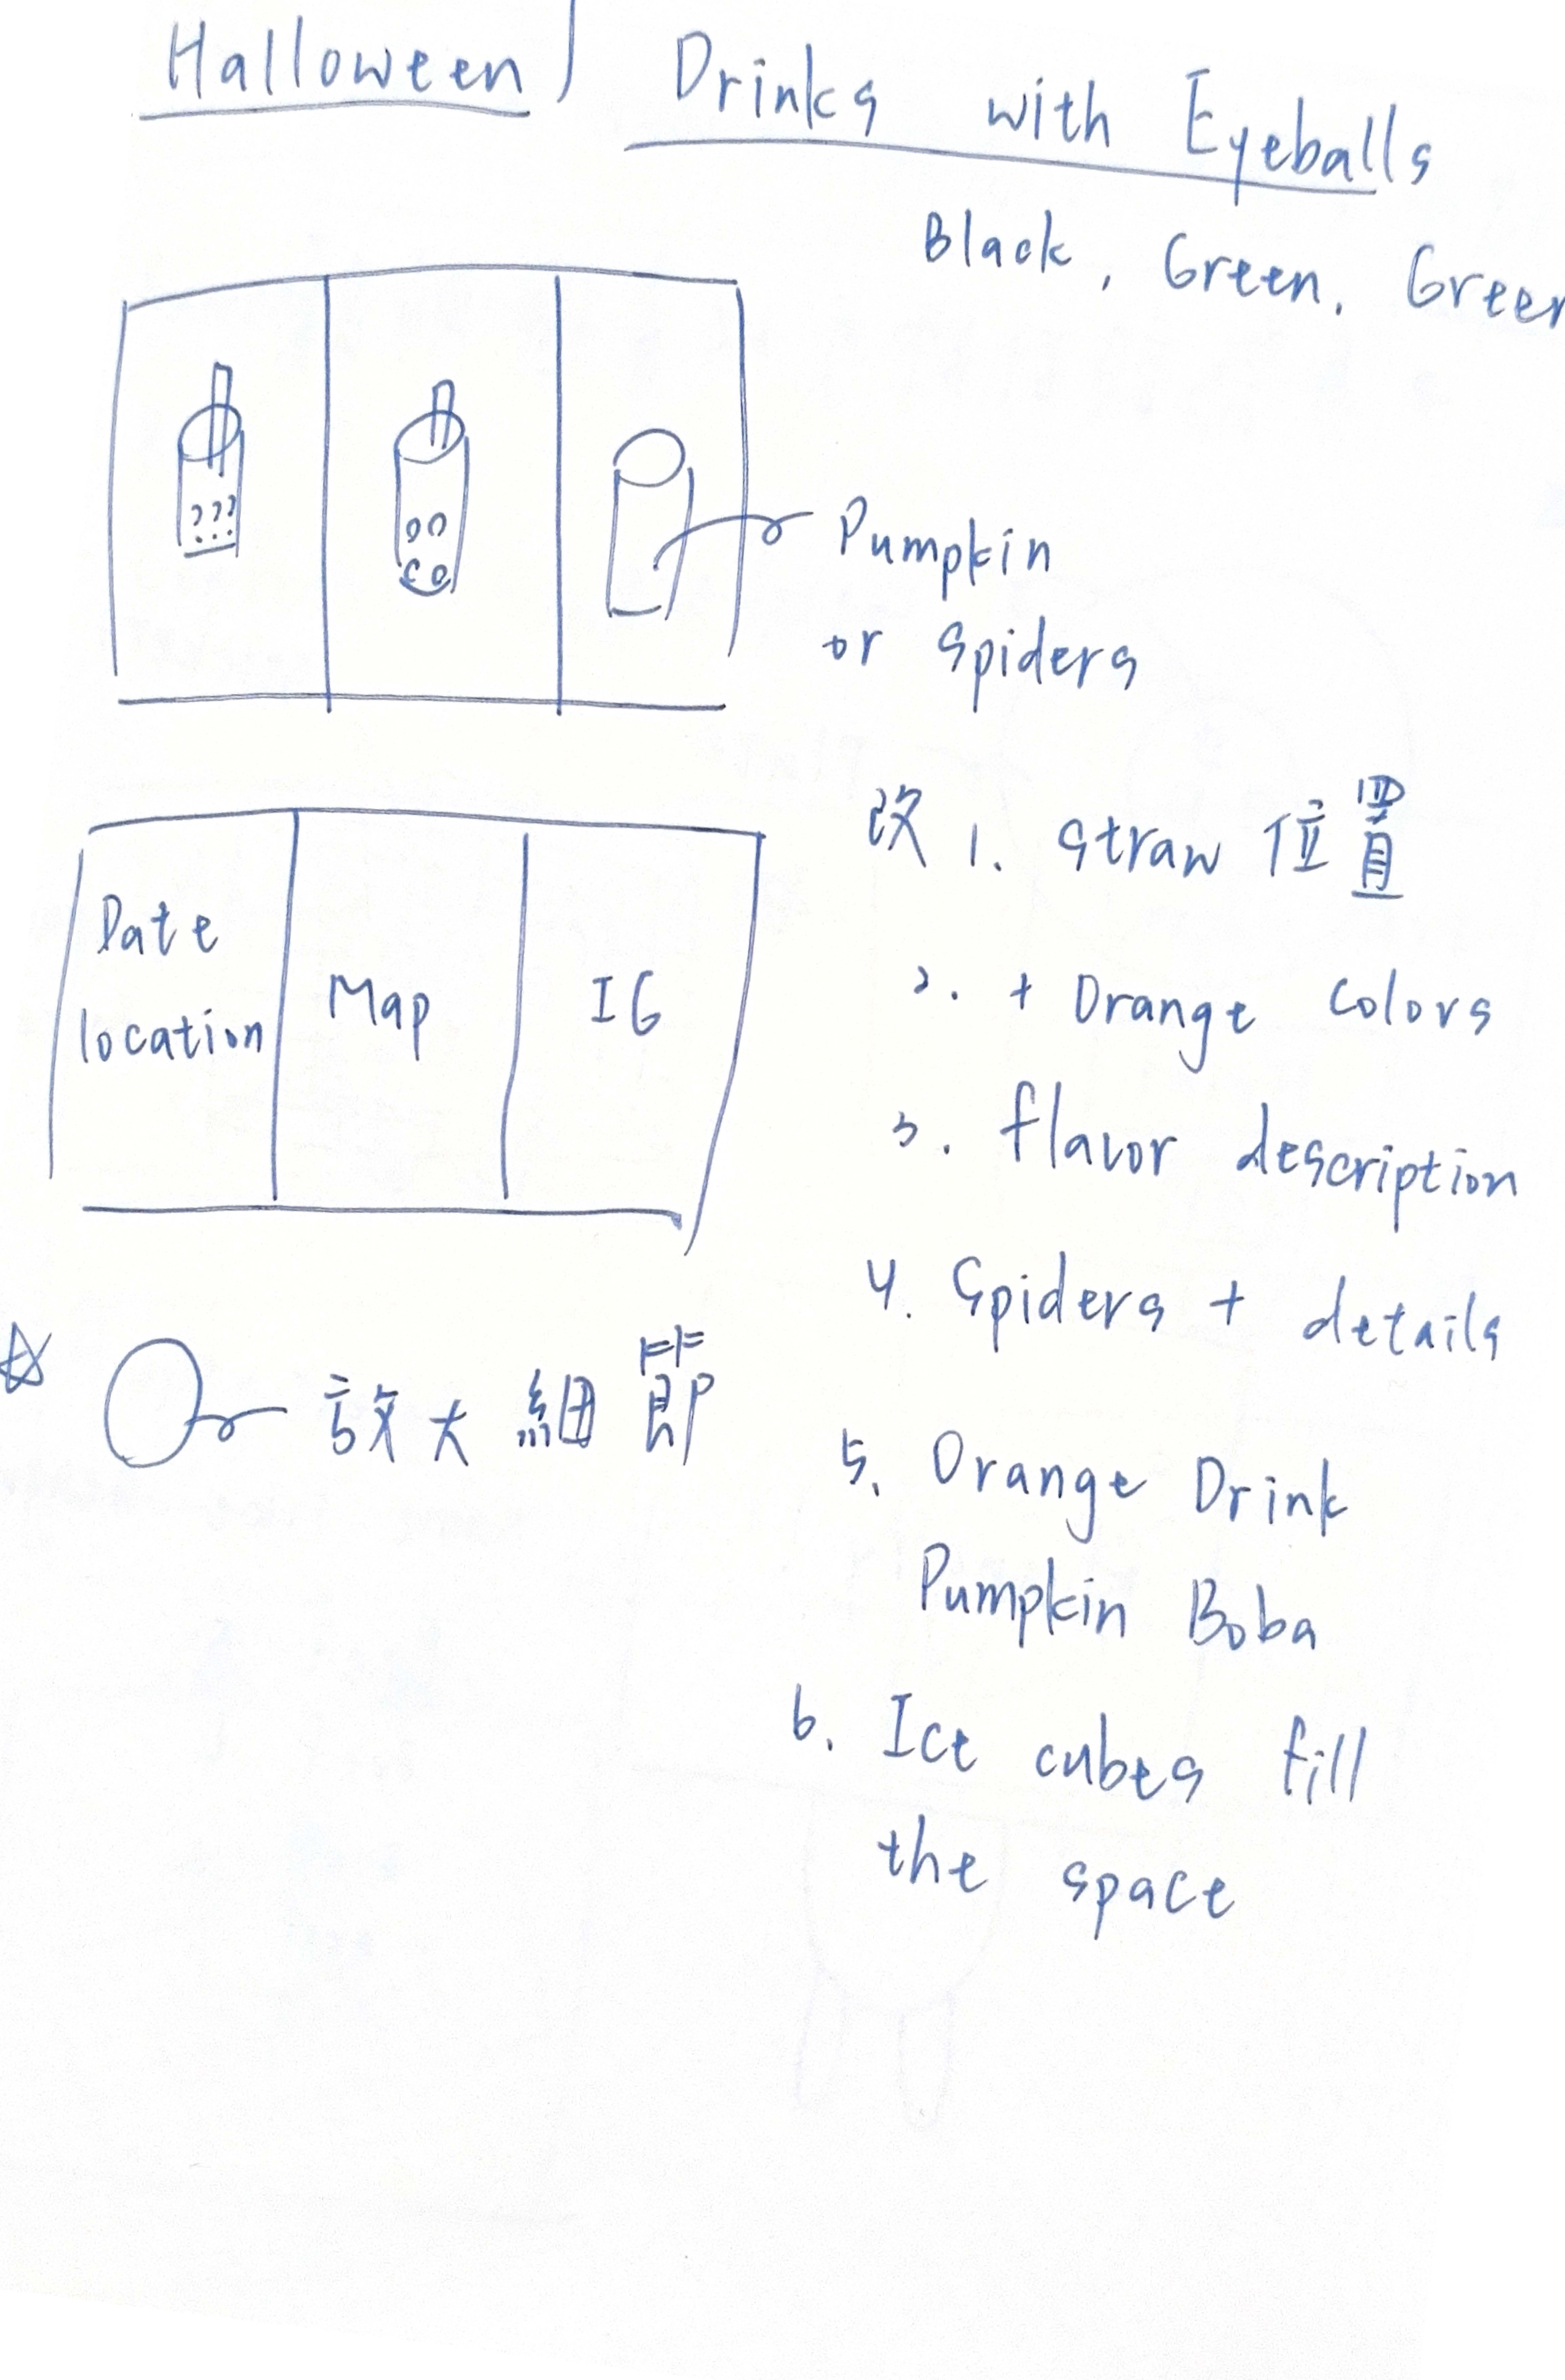 Halloween / Drinks with Eyeballs
Black, Green, Green
Pumpkin
or Spiders
改 1. Straw 位置
2. + Orange colors
3. flavor description
4. Spiders + details
5. Orange Drink
Pumpkin Boba
6. Ice cubes fill
the space
Date
location
Map
IG
☆ 放大細節